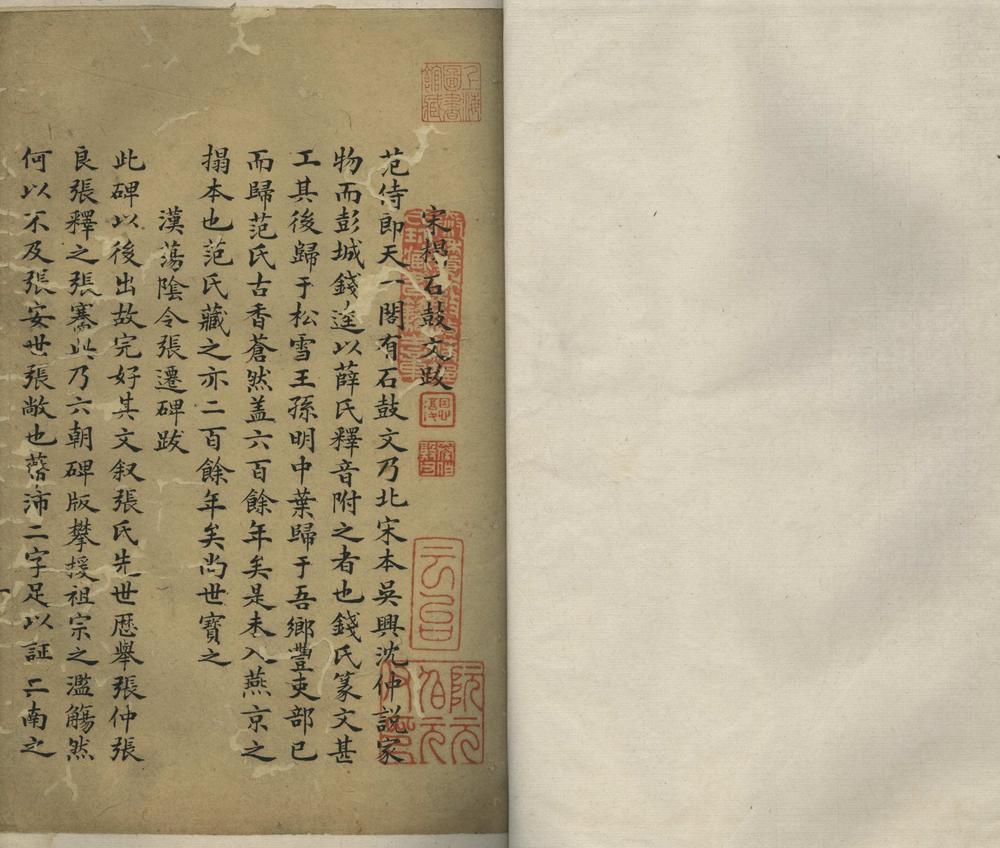 宋搨石鼓文跋
范侍郎天一閣有石鼓文乃北宋本吳興沈仲説家
物而彭城錢逵以薛氏釋音附之者也錢氏篆文甚
工其後歸于松雪王孫明中葉歸于吾鄉豐吏部已
而歸范氏古香蒼然盖六百餘年矣是未入燕京之
搨本也范氏藏之亦二百餘年矣尚世寶之
漢蕩陰令張遷碑跋
此碑以後出故完好其文叙張氏先世歷舉張仲張
良張釋之張騫此乃六朝碑版攀援祖宗之濫觴然
何以不及張安世張敞也蔽沛二字足以証二南之
上海圖書館藏
阮元伯元父印